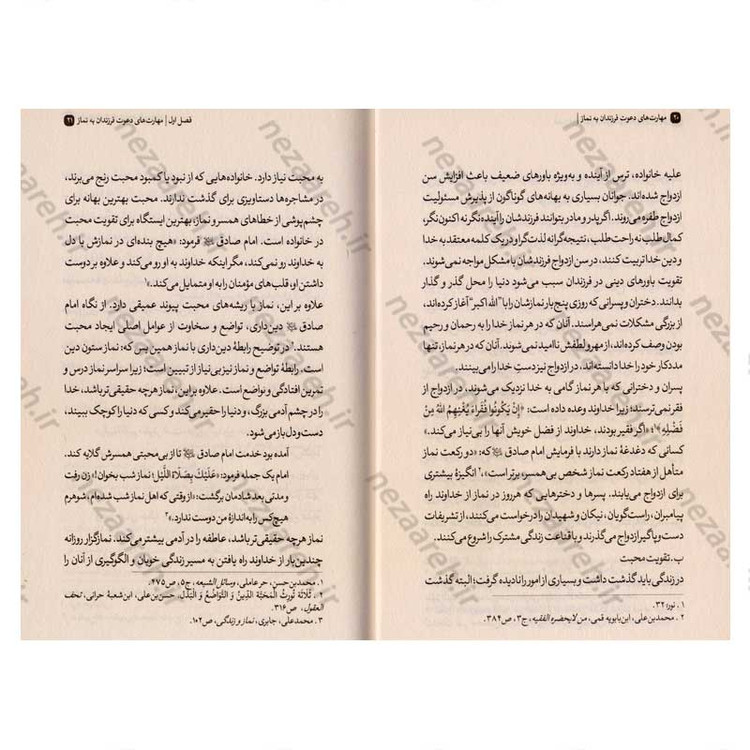 ۲۰ مهارت‌های دعوت فرزندان به نماز |
علیه خانواده، ترس از آینده و به‌ویژه باورهای ضعیف باعث افزایش سن
ازدواج شده‌اند. جوانان بسیاری به بهانه‌های گوناگون از پذیرش مسئولیت
ازدواج طفره می‌روند. اگر پدر و مادر بتوانند فرزندشان را آینده‌نگر نه اکنون‌نگر،
کمال‌طلب نه راحت‌طلب، نتیجه‌گرا نه لذت‌گرا و در یک کلمه معتقد به خدا
و دین خدا تربیت کنند، در سن ازدواج فرزندشان با مشکل مواجه نمی‌شوند.
تقویت باورهای دینی در فرزندان سبب می‌شود دنیا را محل گذر و گذار
بدانند. دختران و پسرانی که روزی پنج بار نمازشان را با "الله اکبر" آغاز کرده‌اند،
از بزرگی مشکلات نمی‌هراسند. آنان که در هر نماز خدا را به رحمان و رحیم
بودن وصف کرده‌اند، از مهر و لطفش ناامید نمی‌شوند. آنان که در هر نماز، تنها
مددکار خود را خدا دانسته‌اند، در ازدواج نیز دستِ خدا را می‌بینند.
پسران و دخترانی که با هر نماز گامی به خدا نزدیک می‌شوند، در ازدواج از
فقر نمی‌ترسند؛ زیرا خداوند وعده داده است: «إِنْ يَكُونُوا فُقَرَاءَ يُغْنِهِمُ اللهُ مِنْ
فَضْلِهِ»؛۱ «اگر فقیر بودند، خداوند از فضل خویش آنها را بی‌نیاز می‌کند.»
کسانی که دغدغهٔ نماز دارند با فرمایش امام صادق ﷺ که: «دو رکعت نماز
متأهل از هفتاد رکعت نماز شخص بی‌همسر، برتر است»،۲ انگیزهٔ بیشتری
برای ازدواج می‌یابند. پسرها و دخترهایی که هر روز در نماز از خداوند راه
پیامبران، راست‌گویان، نیکان و شهیدان را درخواست می‌کنند، از تشریفات
دست‌وپاگیر ازدواج می‌گذرند و با قناعت زندگی مشترک را شروع می‌کنند.
ب. تقویت محبت
در زندگی باید گذشت داشت و بسیاری از امور را نادیده گرفت؛ البته گذشت
۱. نور: ۳۲.
۲. محمدبن‌علی، ابن‌بابویه قمی، من لایحضره الفقیه، ج۳، ص۳۸۴.
فصل اول | مهارت‌های دعوت فرزندان به نماز ۲۱
به محبت نیاز دارد. خانواده‌هایی که از نبود یا کمبود محبت رنج می‌برند،
در مشاجره‌ها دستاویزی برای گذشت ندارند. محبت بهترین بهانه برای
چشم‌پوشی از خطاهای همسر و نماز، بهترین ایستگاه برای تقویت محبت
در خانواده است. امام صادق ﷺ فرمود: «هیچ بنده‌ای در نمازش با دل
به خداوند رو نمی‌کند، مگر اینکه خداوند به او رو می‌کند و علاوه بر دوست
داشتن او، قلب‌های مؤمنان را به او متمایل می‌کند.»۱
علاوه بر این، نماز با ریشه‌های محبت پیوند عمیقی دارد. از نگاه امام
صادق ﷺ دین‌داری، تواضع و سخاوت از عوامل اصلی ایجاد محبت
هستند.۲ در توضیح رابطهٔ دین‌داری با نماز همین بس که؛ نماز ستون دین
است. رابطهٔ تواضع و نماز نیز بی‌نیاز از تبیین است؛ زیرا سراسر نماز درس و
تمرین افتادگی و تواضع است. علاوه بر این، نماز هرچه حقیقی‌تر باشد، خدا
را در چشم آدمی بزرگ، و دنیا را حقیر می‌کند و کسی که دنیا را کوچک ببیند،
دست و دل باز می‌شود.
آمده بود خدمت امام صادق ﷺ تا از بی‌محبتی همسرش گلایه کند.
امام یک جمله فرمود: «عَلَيْكَ بِصَلَاةِ اللَّيْلِ؛ نماز شب بخوان!» زن رفت
و مدتی بعد شادمان برگشت: «از وقتی که اهل نماز شب شده‌ام، شوهرم
هیچ‌کس را به اندازهٔ من دوست ندارد.»۳
نماز هرچه حقیقی‌تر باشد، عاطفه را در آدمی بیشتر می‌کند. نمازگزار روزانه
چندین بار از خداوند راه یافتن به مسیر زندگی خوبان و الگوگیری از آنان را
۱. محمدبن‌حسن، حر عاملی، وسائل الشیعه، ج۵، ص۴۷۵.
۲. ثَلَاثَةٌ تُورِثُ الْمَحَبَّةَ الدِّينُ وَ التَّوَاضُعُ وَ الْبَذْلُ. حسن‌بن‌علی، ابن‌شعبهٔ حرانی، تحف
العقول، ص۳۱۶.
۳. محمدعلی، جابری، نماز و زندگی، ص۱۰۲.
nezaareh.ir